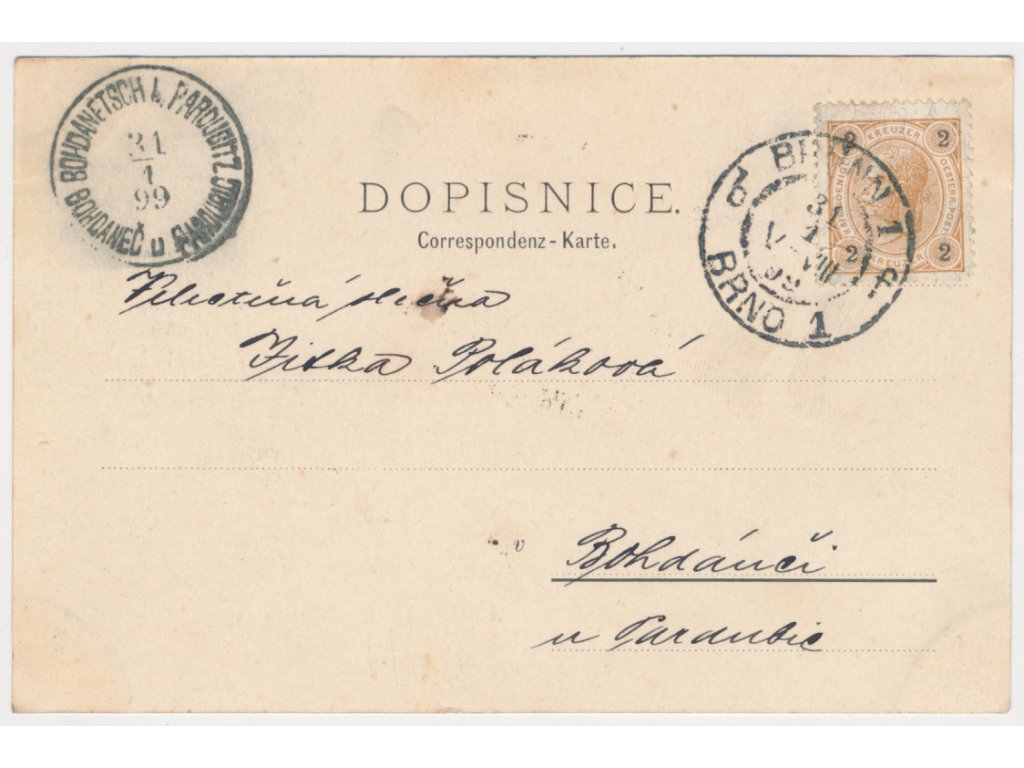 BOHDANETSCH b. PARDUBITZ
BOHDANEČ u PARDUBIC
31
1
99
DOPISNICE.
Correspondenz-Karte.
BRÜNN 1
BRNO 1
31
1
99
2 KREUZER 2
OESTERR. POST
2 KREUZER 2
slečna
Jitka Poláková
v Bohdánči
u Pardubic